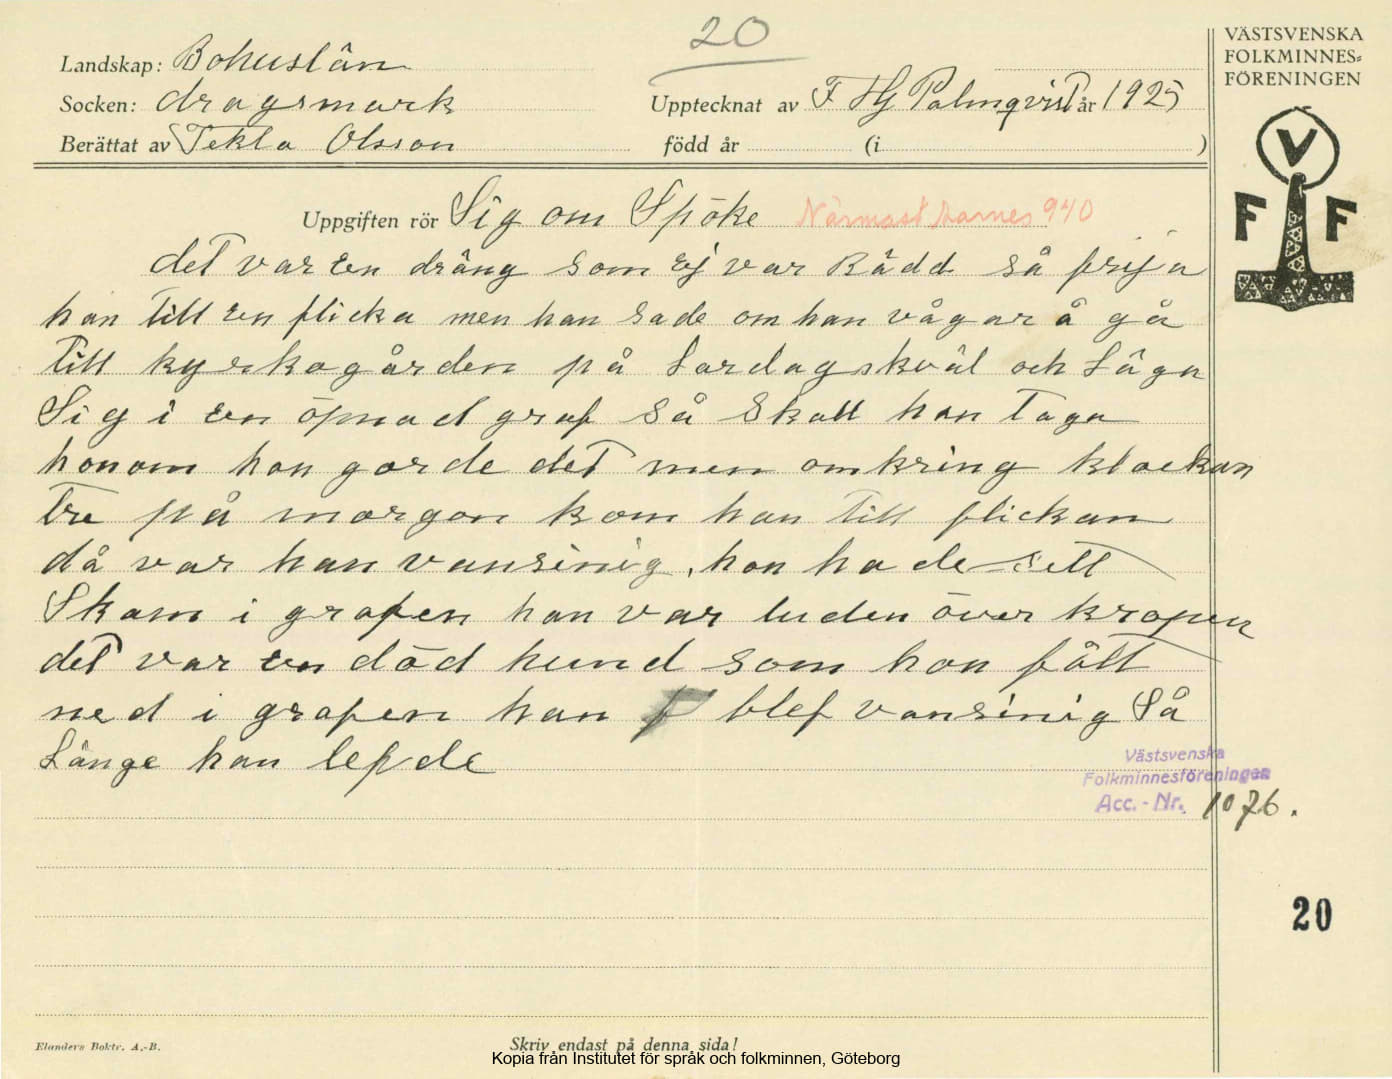 20
VÄSTSVENSKA
FOLKMINNES=
FÖRENINGEN
Landskap: Bohuslän
Socken: dragsmark
Upptecknat av F Hj Palmqvist år 1925
Berättat av Tekla Olsson
född år (i )
V
F F
Uppgiften rör Sig om Spöke Närmast Aarnes 940
det var en dräng som ej var Rädd så frija
han till en flicka men han sade om han vågar å gå
till kyrkogården på Lördagskväl och Läga
Sig i en öpnad graf så skall hon Taga
honom han gorde det men omkring klockan
tre på morgon kom han till flickan
då var han vansinig, han hade sett
Skam i grafen han var luden över kropen
det var en död hund som hon fått
ned i grafen han blef vansinig Så
Länge han lefde
Västsvenska
Folkminnesföreningen
Acc.-Nr. 1076.
20
Elanders Boktr. A.-B.
Skriv endast på denna sida!
Kopia från Institutet för språk och folkminnen, Göteborg